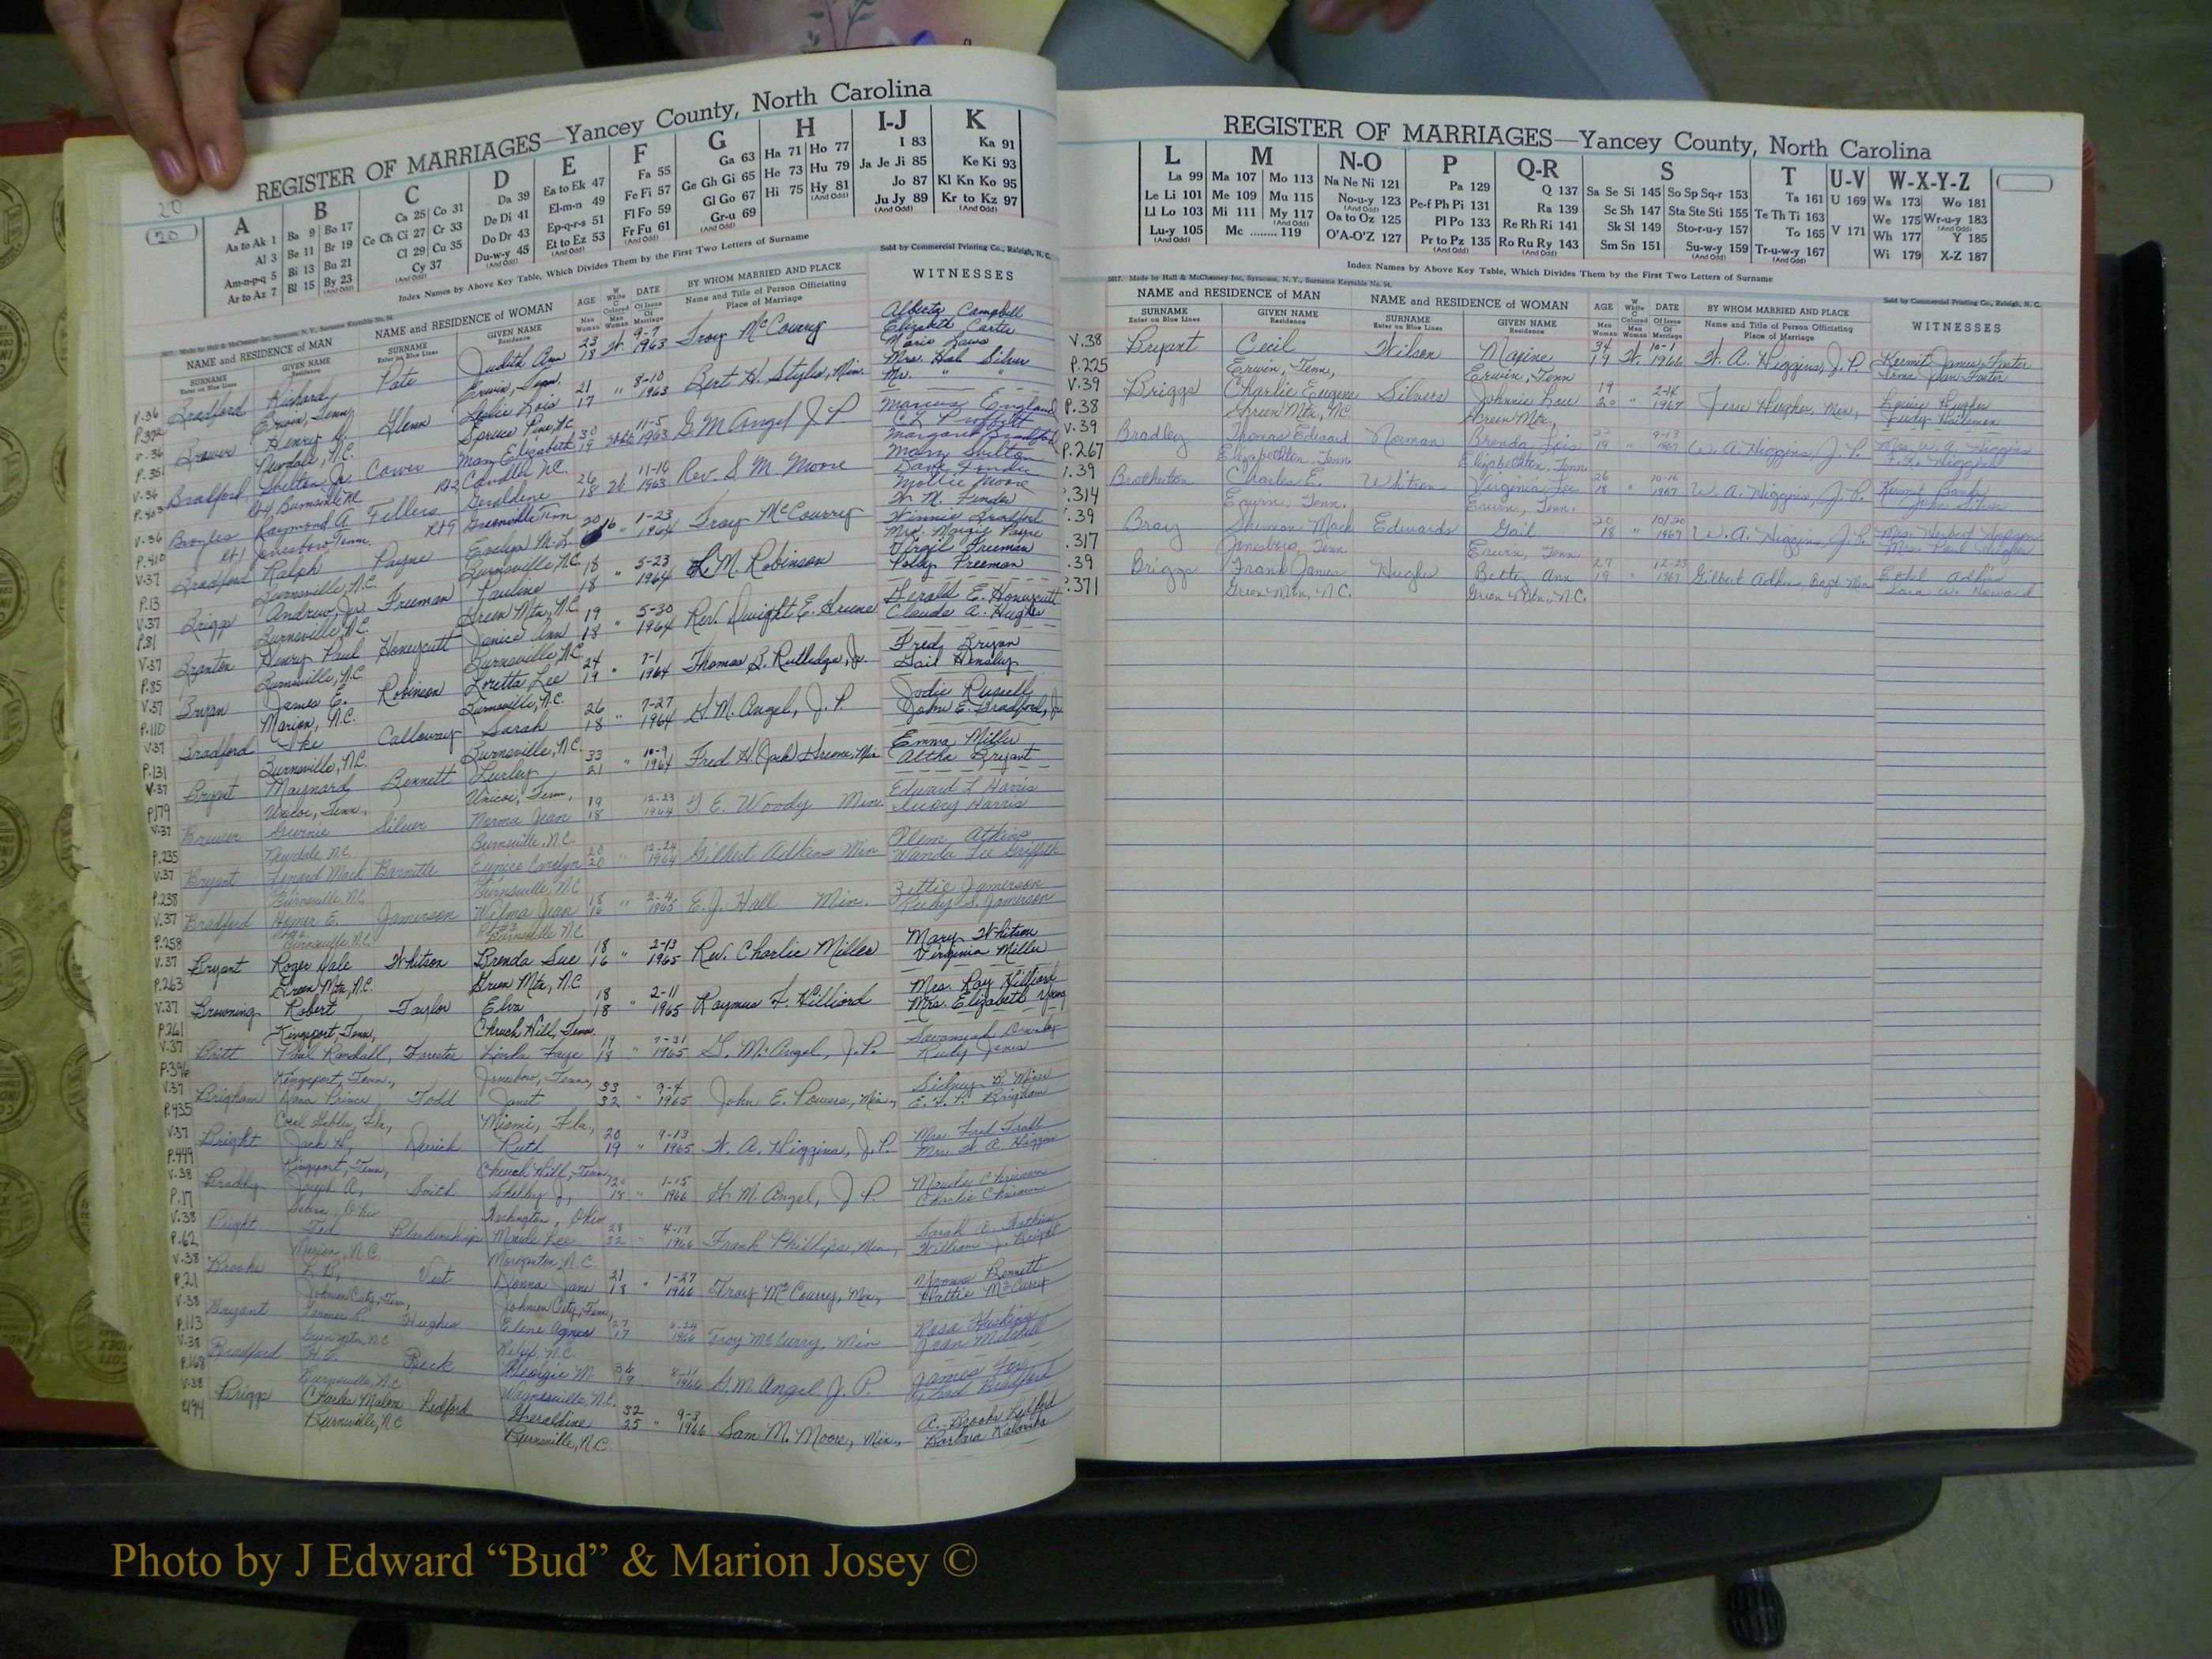 20
20
REGISTER OF MARRIAGES—Yancey County, North Carolina
A B C D E F G H I-J K
Aa to Ak 1 Ba 9 Bo 17 Ca 25 Co 31 Da 39 Ea to Ek 47 Fa 55 Ga 63 Ha 71 Ho 77 I 83 Ka 91
Al 3 Be 11 Br 19 Ce Ch Ci 27 Cr 33 De Di 41 El-m-n 49 Fe Fi 57 Ge Gh Gi 65 He 73 Hu 79 Ja Je Ji 85 Ke Ki 93
Am-n-p-q 5 Bi 13 Bu 21 Cl 29 Cu 35 Do Dr 43 Ep-q-r-s 51 Fl Fo 59 Gl Go 67 Hi 75 Hy 81 Jo 87 Kl Kn Ko 95
Ar to Az 7 Bl 15 By 23 Cy 37 Du-w-y 45 Et to Ez 53 Fr Fu 61 Gr-u 69 Ju Jy 89 Kr to Kz 97
Index Names by Above Key Table, Which Divides Them by the First Two Letters of Surname
Sold by Commercial Printing Co., Raleigh, N. C.
NAME and RESIDENCE of MAN NAME and RESIDENCE of WOMAN AGE DATE BY WHOM MARRIED AND PLACE WITNESSES
SURNAME GIVEN NAME SURNAME GIVEN NAME Name and Title of Person Officiating
Enter on Blue Lines Residence Enter on Blue Lines Residence Place of Marriage
V.36 Bradford Richard Pate Judith Ann 23 18 W. 9-7 1963 Troy McCourry Alberta Campbell
Erwin, Tenn. Erwin, Tenn. Elizabeth Carter
V.36 Brewer Henry Glenn Leslie Lois 21 17 " 8-10 1963 Bert H. Styles, Min. Mrs. Hob Silver
P.351 Newdale, N.C. Spruce Pine, N.C. Mr. " "
V.36 Bradford Shelton, Jr. Carver Mary Elizabeth 30 19 11-5 1963 G M Angel J P Marcus England
P.403 Rt 4 Burnsville NC Rt 2 Candler N.C. Margaret Bradford
V.36 Broyles Raymond A Fellers Geraldine 26 18 W. 11-16 1963 Rev. S M. Moore Mary Shelton
P.410 Rt 1 Jonesboro Tenn Rt 9 Greenville Tenn Mollie Moore
V.37 Bradford Ralph Payne Evelyn M. L. 20 16 " 1-23 1964 Troy McCourry Winnie Bradford
P.13 Burnsville, N.C. Burnsville, N.C. Mrs. Payne
V.37 Briggs Andrew, Jr. Freeman Pauline 18 18 " 5-23 1964 L. M. Robinson Virgil Freeman
P.81 Burnsville, N.C. Green Mtn., N.C. Polly Freeman
V.37 Branton Henry Paul Honeycutt Janice Ann 19 18 " 5-30 1964 Rev. Dwight E. Greene Gerald E. Honeycutt
P.85 Burnsville, N.C. Burnsville, N.C. Claude A. Hughes
V.37 Bryan James E. Robinson Loretta Lee 24 19 " 7-1 1964 Thomas B. Rutledge, Jr. Fred Bryan
P.110 Marion, N.C. Burnsville, N.C. Gail Hensley
V.37 Bradford Ike Calloway Sarah 26 18 " 7-27 1964 G. M. Angel, J. P. Jodie Russell
P.131 Burnsville, N.C. Burnsville, N.C. John E. Bradford, Jr.
V.37 Bryant Maynard Bennett Shirley 33 21 " 10-9 1964 Fred H. (Jack) Greene, Min. Emma Miller
P.179 Unicoi, Tenn., Unicoi, Tenn., Altha Bryant
V.37 Brewer Silver Norma Jean 19 18 12-23 1964 T. E. Woody Min. Edward L Harris
P.235 Newdale N.C. Burnsville, N.C. Harris
V.37 Bryant Lenard Mack Barnette Eunice Carolyn 20 20 " 12-24 1964 Gilbert Adkins Min Atkins
P.238 Burnsville N.C. Burnsville, N.C Wanda Lee Griffith
V.37 Bradford Homer E. Jamerson Wilma Jean 18 16 " 2-4 1965 E. J. Hall Min. Zettie Jamerson
P.258 Burnsville N.C. Burnsville N.C Ruby S. Jamerson
V.37 Bryant Roger Dale Whitson Brenda Sue 18 16 " 2-13 1965 Rev. Charlie Miller Mary Whitson
P.263 Green Mtn., N.C. Green Mtn., N.C Virginia Miller
V.37 Browning Robert Taylor Elva 18 18 " 2-11 1965 Raymus F. Hilliard Mrs. Ray Hilliard
P.261 Kingsport, Tenn., Church Hill, Tenn. Mrs. Elizabeth Young
V.37 Britt Paul Randall, Forrester Linda Faye 19 18 " 7-31 1965 G. M. Angel, J. P. Savannah
P.396 Kingsport, Tenn., Jonesboro, Tenn., Ruby Jones
V.37 Brigham Dana Prince Todd Janet 33 32 " 9-4 1965 John E. Powers, Min., Sidney B.
P.435 Coral Gables, Fla., Miami, Fla., E. F. P. Brigham
V.37 Bright Jack H. Ruth 20 19 " 9-13 1965 W. A. Higgins, J. P. Mrs. Fred
P.449 Kingsport, Tenn., Church Hill, Tenn., Mrs. W. A. Higgins
V.38 Braddy Joseph A. Smith Shelby J. 20 18 " 1-15 1966 G. M. Angel, J. P. Chrisawn
P.17 Ohio Washington, Ohio Charlie Chrisawn
V.38 Bright Ted Blankenship Maude Lee 28 22 4-17 1966 Frank Phillips, Min., Sarah A.
P.62 Marion, N.C. Morganton, N.C. William J. Bright
V.38 Brooks Vest Donna Jane 21 18 " 1-27 1966 Troy McCourry, Min., Bennett
P.21 Johnson City, Tenn., Johnson City, Tenn., Hattie McCurry
V.38 Bryant Farmer R. Hughes Elene Agnes 27 17 1966 Troy McCurry, Min Rosa Huskins
P.113 Green Mtn., N.C. Relief, N.C. Jean Mitchell
V.38 Bradford H. Buck Georgie M. 36 19 1966 G. M. Angel J. P. James
P.168 Burnsville, N.C. Waynesville, N.C. Bradford
V.38 Briggs Charles Malone Ledford Gheraldine 32 25 " 9-3 1966 Sam M. Moore, Min., A. Brooks Ledford
P.194 Burnsville, N.C Burnsville, N.C. Barbara
REGISTER OF MARRIAGES—Yancey County, North Carolina
L M N-O P Q-R S T U-V W-X-Y-Z
La 99 Ma 107 Mo 113 Na Ne Ni 121 Pa 129 Q 137 Sa Se Si 145 So Sp Sq-r 153 Ta 161 U 169 Wa 173 Wo 181
Le Li 101 Me 109 Mu 115 No-u-y 123 Pe-f Ph Pi 131 Ra 139 Sc Sh 147 Sta Ste Sti 155 Te Th Ti 163 We 175 Wr-u-y 183
Ll Lo 103 Mi 111 My 117 Oa to Oz 125 Pl Po 133 Re Rh Ri 141 Sk Sl 149 Sto-r-u-y 157 To 165 V 171 Wh 177 Y 185
Lu-y 105 Mc ........ 119 O'A-O'Z 127 Pr to Pz 135 Ro Ru Ry 143 Sm Sn 151 Su-w-y 159 Tr-u-w-y 167 Wi 179 X-Z 187
Index Names by Above Key Table, Which Divides Them by the First Two Letters of Surname
5617. Made by Hall & McChesney Inc, Syracuse, N. Y., Surname Keytable No. 94.
Sold by Commercial Printing Co., Raleigh, N. C.
NAME and RESIDENCE of MAN NAME and RESIDENCE of WOMAN AGE DATE BY WHOM MARRIED AND PLACE WITNESSES
SURNAME GIVEN NAME SURNAME GIVEN NAME Name and Title of Person Officiating
Enter on Blue Lines Residence Enter on Blue Lines Residence Place of Marriage
V.38 Bryant Cecil Wilson Maxine 34 19 W. 10-1 1966 W. A. Higgins, J. P. Kermit James Foster
P.225 Erwin, Tenn., Erwin, Tenn Jean Foster
V.39 Briggs Charlie Eugene Silvers Johnnie Lou 19 20 " 2-4 1967 Jesse Hughes, Min., Louise Hughes
P.38 Green Mtn., N.C. Green Mtn.,
V.39 Bradley Thomas Edward Norman Brenda Lois 22 19 " 9-13 1967 W. A. Higgins, J. P. Mrs. W. A. Higgins
P.267 Elizabethton, Tenn. Elizabethton, Tenn.
V.39 Brotherton Charles E. Whitson Virginia Lee 26 18 " 10-16 1967 W. A. Higgins, J. P. Kermit Banks
P.314 Erwin, Tenn. Erwin, Tenn. John Silver
.39 Bray Sherman Mack Edwards Gail 20 18 " 10/20 1967 W. A. Higgins, J. P. Mrs. Herbert
.317 Jonesboro, Tenn Erwin, Tenn Mrs. Paul
.39 Briggs Frank James Hughes Betty Ann 27 19 " 12-23 1967 Gilbert Adkins, Bapt Min Ethel Adkins
.371 Green Mtn, N.C. Green Mtn., N.C. Howard
Photo by J Edward “Bud” & Marion Josey ©